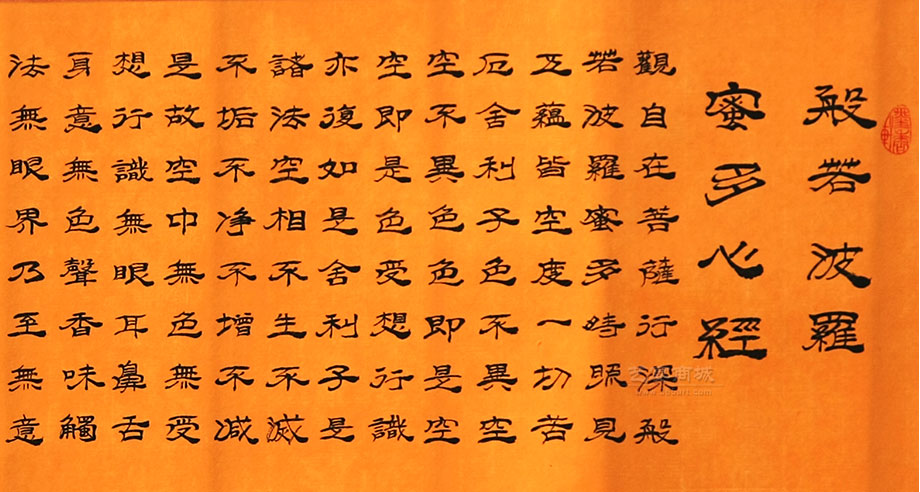 般若波羅
蜜多心經
觀自在菩薩行深般
若波羅蜜多時照見
五蘊皆空度一切苦
厄舍利子色不異空
空不異色色即是空
空即是色受想行識
亦復如是舍利子是
諸法空相不生不滅
不垢不净不增不减
是故空中無色無受
想行識無眼耳鼻舌
身意無色聲香味觸
法無眼界乃至無意